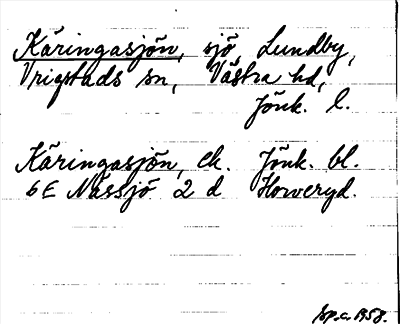 Käringasjön, sjö, Lundby,
Vrigstads sn, Västra hd,
Jönk. l.
Käringasjön, ek. Jönk. bl.
6E Nässjö 2 d Horveryd.
sp.c. 1958.